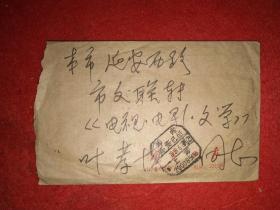 本市延安西路
市文联转
《电视·电影·文学》
叶孝慎 同志